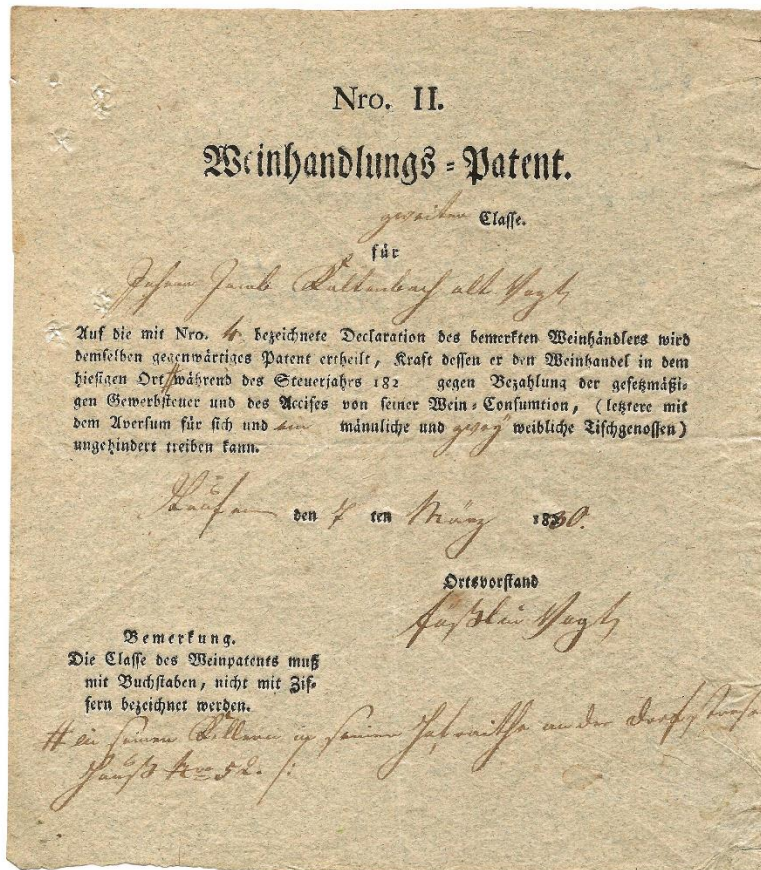 Nro. II.
Weinhandlungs-Patent.
zweiten Classe.
für
Johann Jacob Kaltenbach alt Vogt
Auf die mit Nro. 4 bezeichnete Declaration des bemerkten Weinhändlers wird
demselben gegenwärtiges Patent ertheilt, Kraft dessen er den Weinhandel in dem
hiesigen Ort # während des Steuerjahrs 182 gegen Bezahlung der gesetzmäßi-
gen Gewerbsteuer und des Accises von seiner Wein-Consumtion, (letztere mit
dem Aversum für sich und ein männliche und zwey weibliche Tischgenossen)
ungehindert treiben kann.
den 7 ten März 1830.
Ortsvorstand
Vogt
Bemerkung.
Die Classe des Weinpatents muß
mit Buchstaben, nicht mit Zif-
fern bezeichnet werden.
# in seinen Kellern in seiner Hofraithe an der Dorfstrase
Hauß Nro 52.